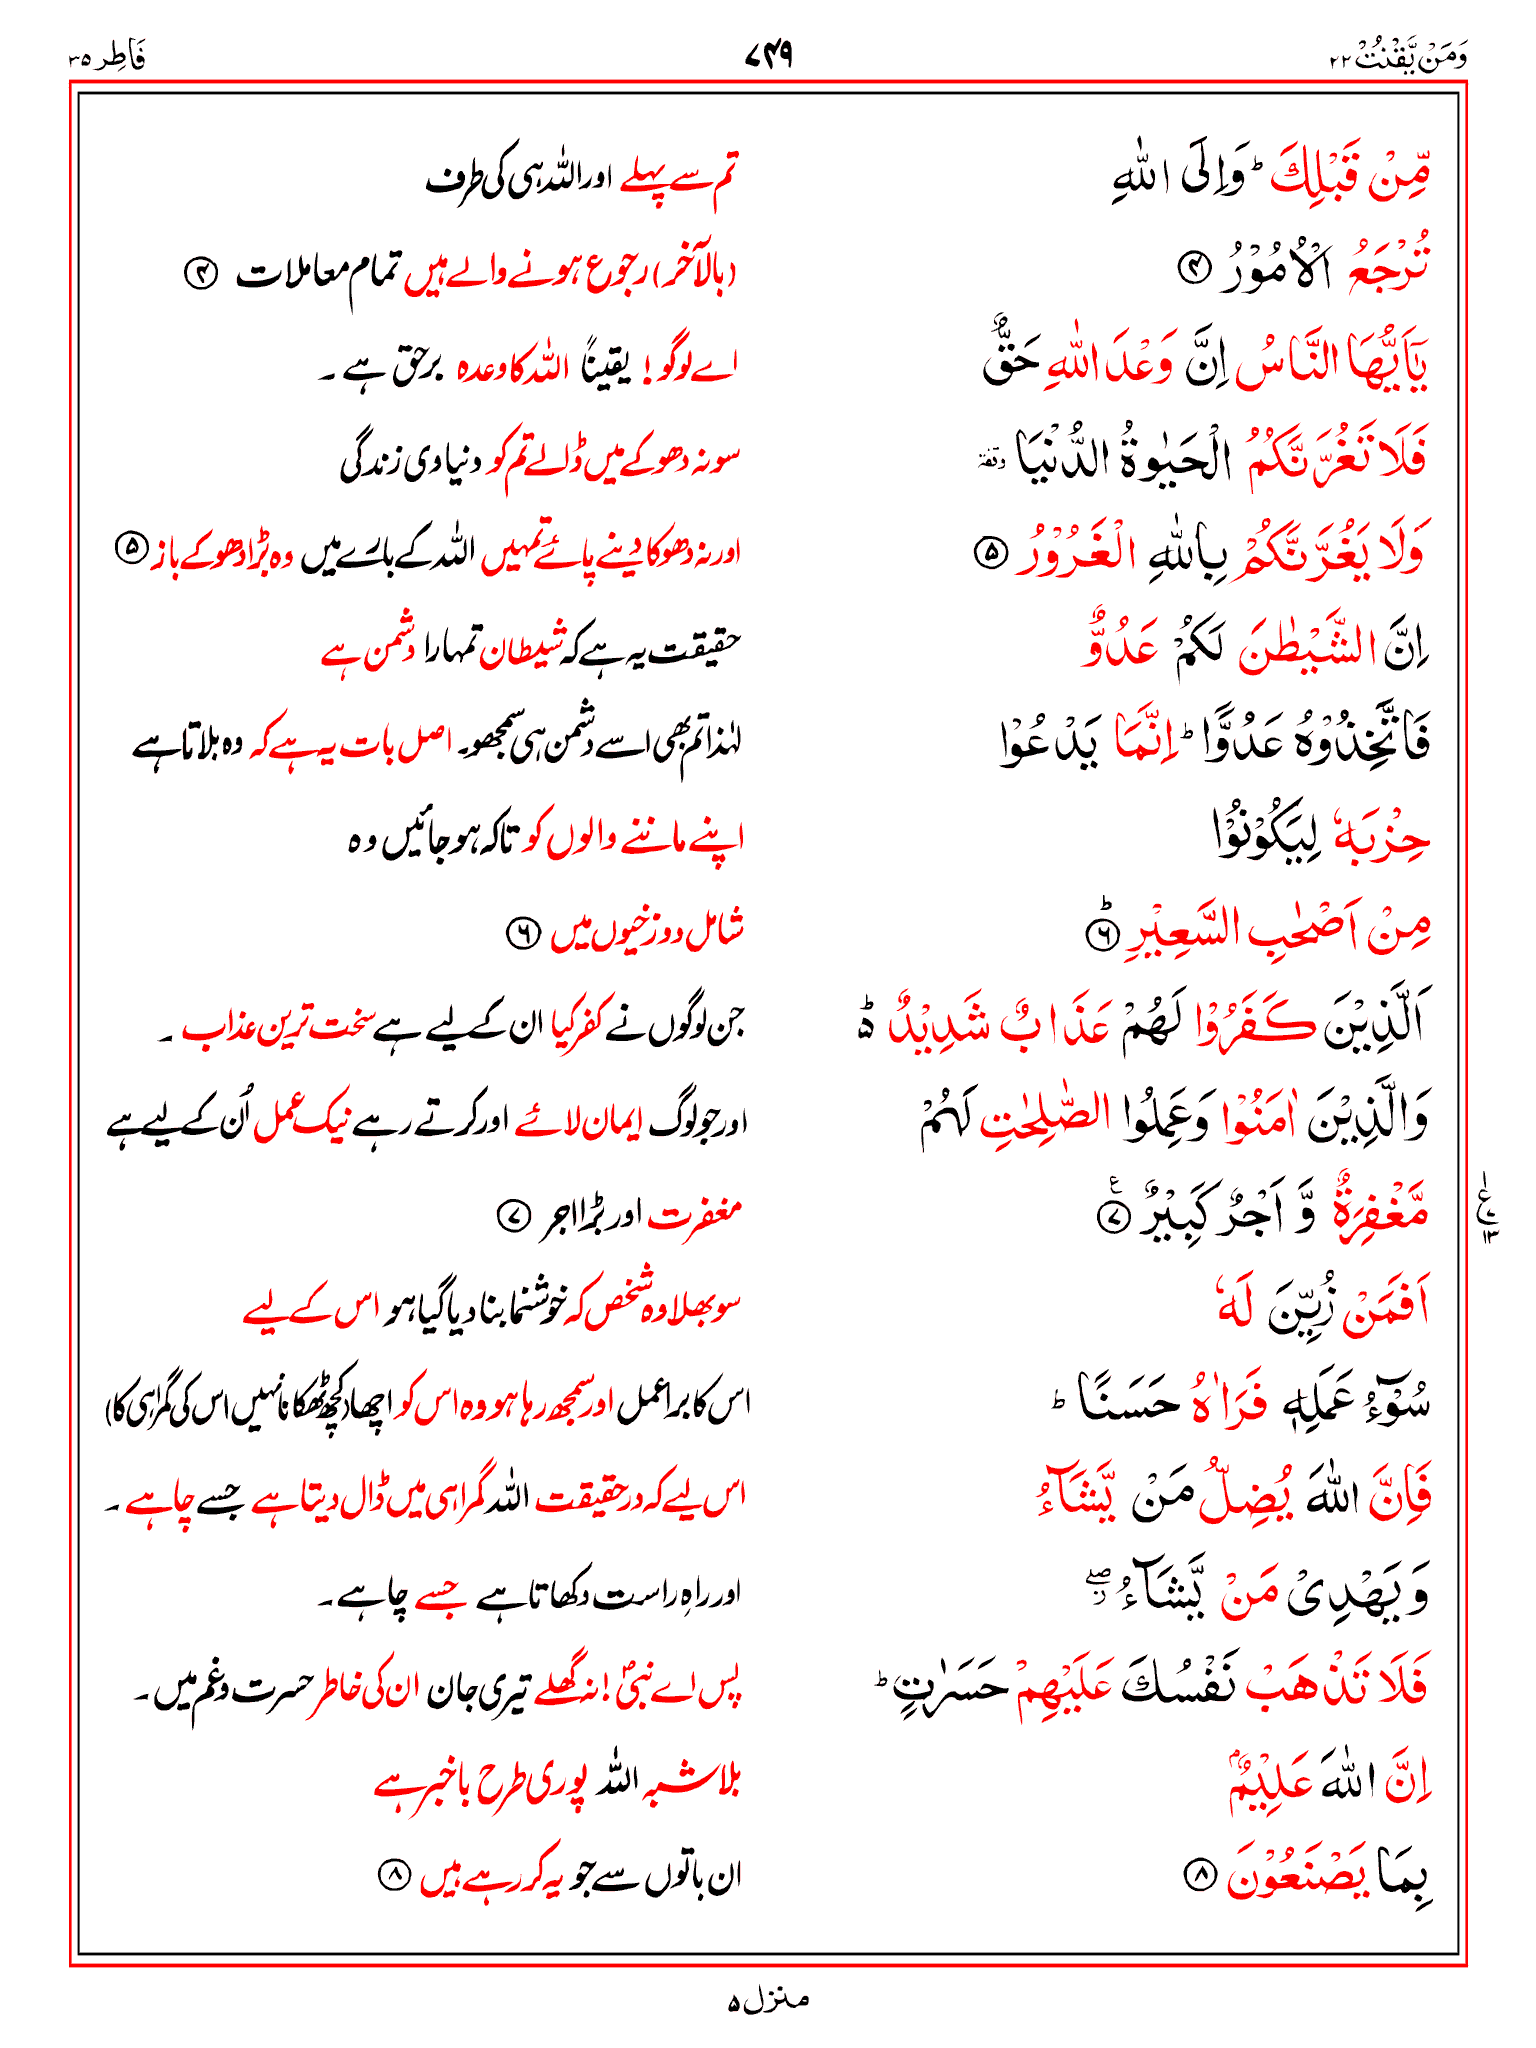 وَمَنْ يَّقْنُتْ ۲۲ ۷۴۹ فَاطِر ۳۵
مِّنْ قَبْلِكَ ؕ وَاِلَى اللّٰهِ تم سے پہلے اور اللہ ہی کی طرف
تُرْجَعُ الْاُمُوْرُ ۴ (بالآخر) رجوع ہونے والے ہیں تمام معاملات ۴
يٰۤاَيُّهَا النَّاسُ اِنَّ وَعْدَ اللّٰهِ حَقٌّ اے لوگو! یقیناً اللہ کا وعدہ برحق ہے۔
فَلَا تَغُرَّنَّكُمُ الْحَيٰوةُ الدُّنْيَا وقفۃ سو نہ دھوکے میں ڈالے تم کو دنیاوی زندگی
وَلَا يَغُرَّنَّكُمْ بِاللّٰهِ الْغَرُوْرُ ۵ اور نہ دھوکا دینے پائے تمہیں اللہ کے بارے میں وہ بڑا دھوکے باز ۵
اِنَّ الشَّيْطٰنَ لَكُمْ عَدُوٌّ حقیقت یہ ہے کہ شیطان تمہارا دشمن ہے
فَاتَّخِذُوْهُ عَدُوًّا ؕ اِنَّمَا يَدْعُوْا لہٰذا تم بھی اسے دشمن ہی سمجھو۔ اصل بات یہ ہے کہ وہ بلاتا ہے
حِزْبَهٗ لِيَكُوْنُوْا اپنے ماننے والوں کو تاکہ ہو جائیں وہ
مِنْ اَصْحٰبِ السَّعِيْرِ ؕ ۶ شامل دوزخیوں میں ۶
اَلَّذِيْنَ كَفَرُوْا لَهُمْ عَذَابٌ شَدِيْدٌ ۬ؕ جن لوگوں نے کفر کیا ان کے لیے ہے سخت ترین عذاب۔
وَالَّذِيْنَ اٰمَنُوْا وَعَمِلُوا الصّٰلِحٰتِ لَهُمْ اور جو لوگ ایمان لائے اور کرتے رہے نیک عمل اُن کے لیے ہے
مَّغْفِرَةٌ وَّ اَجْرٌ كَبِيْرٌ ۷ مغفرت اور بڑا اجر ۷
۱ ع ۱۳
اَفَمَنْ زُيِّنَ لَهٗ سو بھلا وہ شخص کہ خوشنما بنا دیا گیا ہو اس کے لیے
سُوْٓءُ عَمَلِهٖ فَرَاٰهُ حَسَنًا ؕ اس کا برا عمل اور سمجھ رہا ہو وہ اس کو اچھا (کچھ ٹھکانا نہیں اس کی گمراہی کا)
فَاِنَّ اللّٰهَ يُضِلُّ مَنْ يَّشَآءُ اس لیے کہ درحقیقت اللہ گمراہی میں ڈال دیتا ہے جسے چاہے۔
وَيَهْدِيْ مَنْ يَّشَآءُ ۖ ز اور راہِ راست دکھاتا ہے جسے چاہے۔
فَلَا تَذْهَبْ نَفْسُكَ عَلَيْهِمْ حَسَرٰتٍ ؕ پس اے نبیؐ! نہ گھلے تیری جان ان کی خاطر حسرت و غم میں۔
اِنَّ اللّٰهَ عَلِيْمٌۢ بلاشبہ اللہ پوری طرح باخبر ہے
بِمَا يَصْنَعُوْنَ ۸ ان باتوں سے جو یہ کر رہے ہیں ۸
منزل ۵